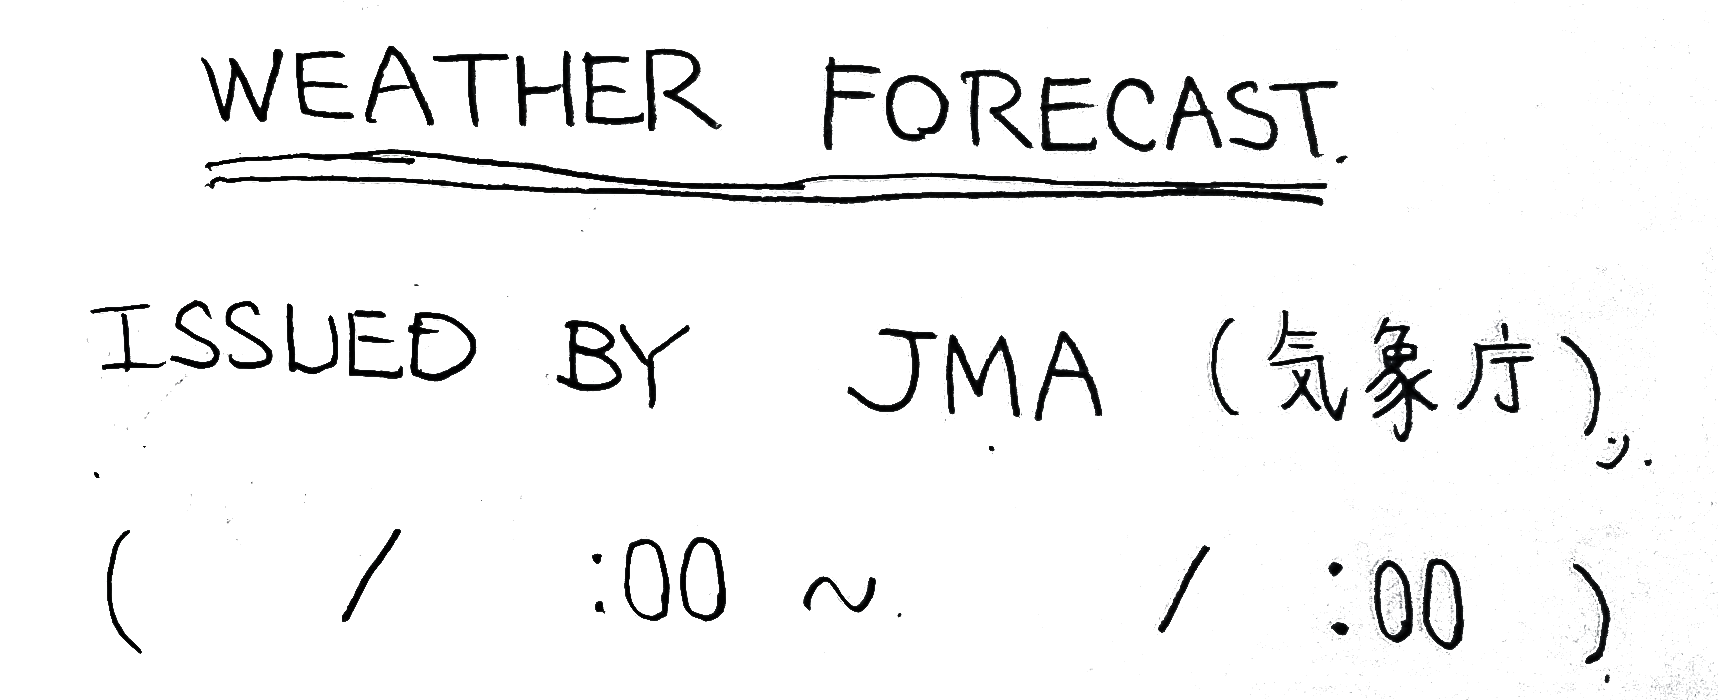 WEATHER FORECAST.
ISSUED BY JMA (気象庁),.
( / :00 ~ / :00 )